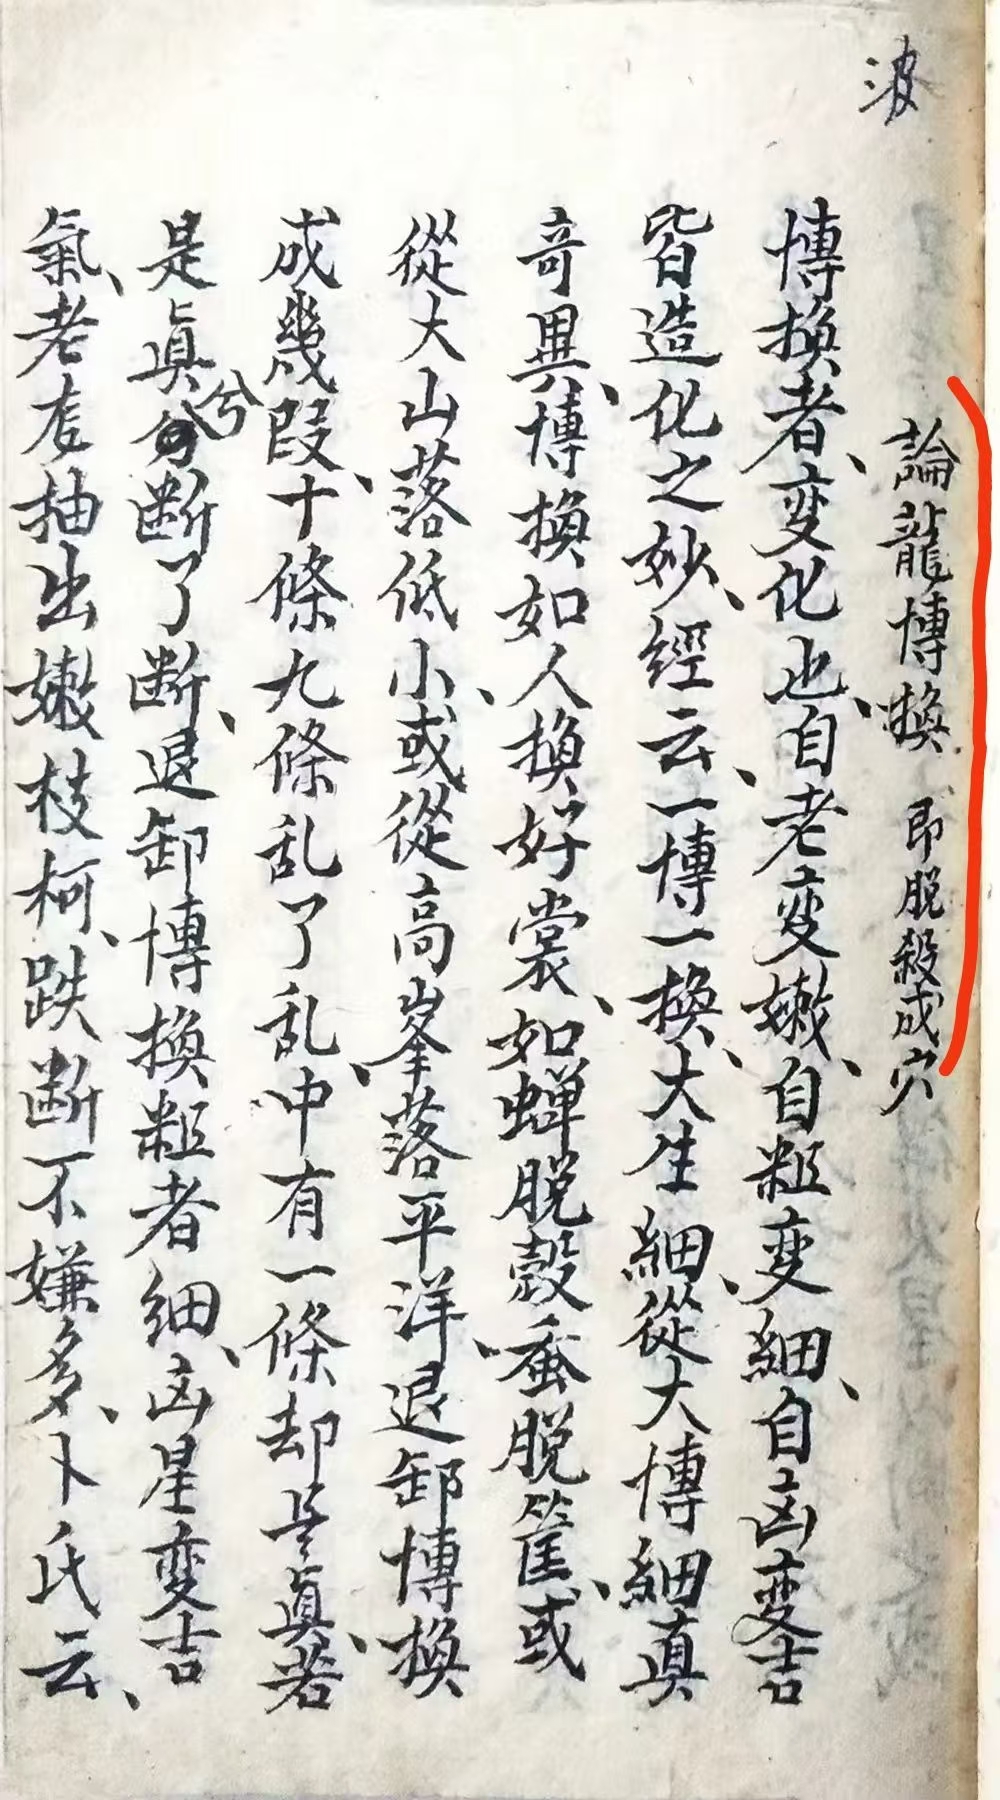 波
論龍博換 即脫殺成穴
博換者、变化也、自老变嫩、自粗变細、自凶变吉
皆造化之妙、經云、一博一換、大生細、從大博細真
奇異、博換如人換好裳、如蟬脫殼蚕脫筐、或
從大山落低小、或從高峯落平洋、退卸博換
成幾段、十條九條乱了乱、中有一條却是真、若
是真兮断了断、退卸博換粗者細、凶星变吉
氣、老夌抽出嫩枝柯、跌断不嫌多、卜氏云、